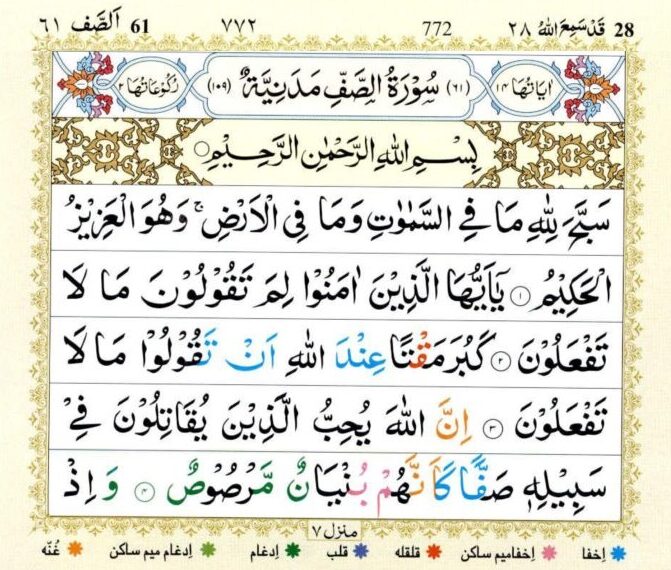 28 قَدْ سَمِعَ اللهُ ٢٨ 772 ٧٧٢ 61 اَلصَّف ٦١
اٰيَاتُهَا ١٤ (٦١) سُوْرَةُ الصَّفِّ مَدَنِيَّةٌ (١٠٩) رُكُوْعَاتُهَا ٢
بِسْمِ اللهِ الرَّحْمٰنِ الرَّحِيْمِ
سَبَّحَ لِلّٰهِ مَا فِي السَّمٰوٰتِ وَمَا فِي الْاَرْضِ ۚ وَهُوَ الْعَزِيْزُ
الْحَكِيْمُ ۝١ يٰٓاَيُّهَا الَّذِيْنَ اٰمَنُوْا لِمَ تَقُوْلُوْنَ مَا لَا
تَفْعَلُوْنَ ۝٢ كَبُرَ مَقْتًا عِنْدَ اللهِ اَنْ تَقُوْلُوْا مَا لَا
تَفْعَلُوْنَ ۝٣ اِنَّ اللهَ يُحِبُّ الَّذِيْنَ يُقَاتِلُوْنَ فِيْ
سَبِيْلِهٖ صَفًّا كَاَنَّهُمْ بُنْيَانٌ مَّرْصُوْصٌ ۝٤ وَاِذْ
منزل ٧
اِخفا اِخفامیم ساکن قلقله قلب اِدغام اِدغام میم ساکن غُنّه